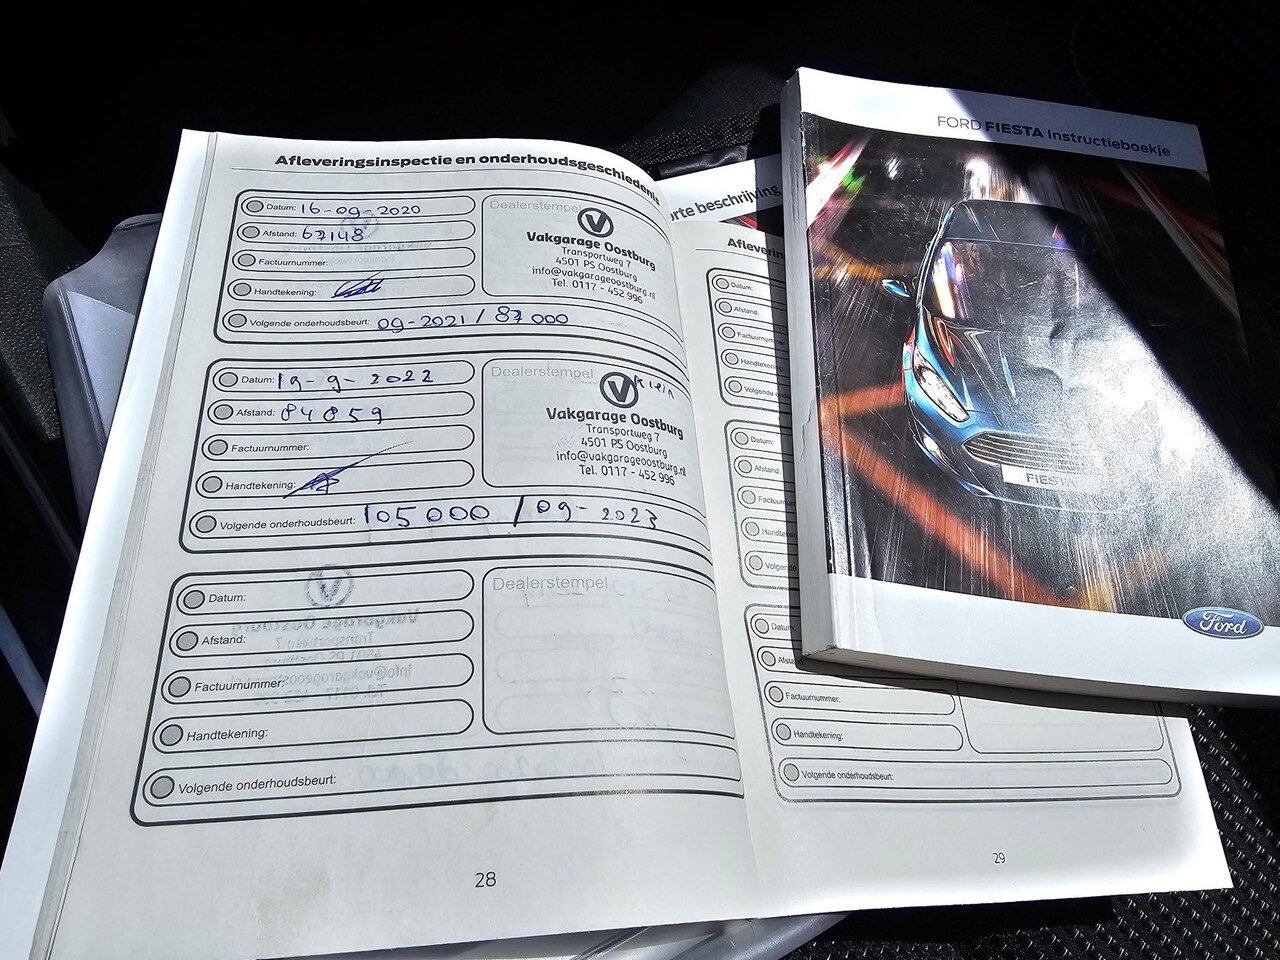 Afleveringsinspectie en onderhoudsgeschiedenis
Datum: 16-09-2020
Afstand: 67148
Factuurnummer:
Handtekening:
Volgende onderhoudsbeurt: 09-2021 / 87000
Dealerstempel
Vakgarage Oostburg
Transportweg 7
4501 PS Oostburg
info@vakgarageoostburg.nl
Tel. 0117 - 452 996
Datum: 19-9-2022
Afstand: 84859
Factuurnummer:
Handtekening:
Volgende onderhoudsbeurt: 105000 / 09-2023
Dealerstempel
klein
Vakgarage Oostburg
Transportweg 7
4501 PS Oostburg
info@vakgarageoostburg.nl
Tel. 0117 - 452 996
Datum:
Afstand:
Factuurnummer:
Handtekening:
Volgende onderhoudsbeurt:
Dealerstempel
28
orte beschrijving
Aflevering
Datum:
Afstand:
Factuurnumm
Handteken
Volgende
Datum:
Afstand:
Factuurnu
Handteke
Volgend
Datum:
Afstand
Factuurnummer:
Handtekening:
Volgende onderhoudsbeurt:
29
FORD FIESTA Instructieboekje
FIESTA
Ford